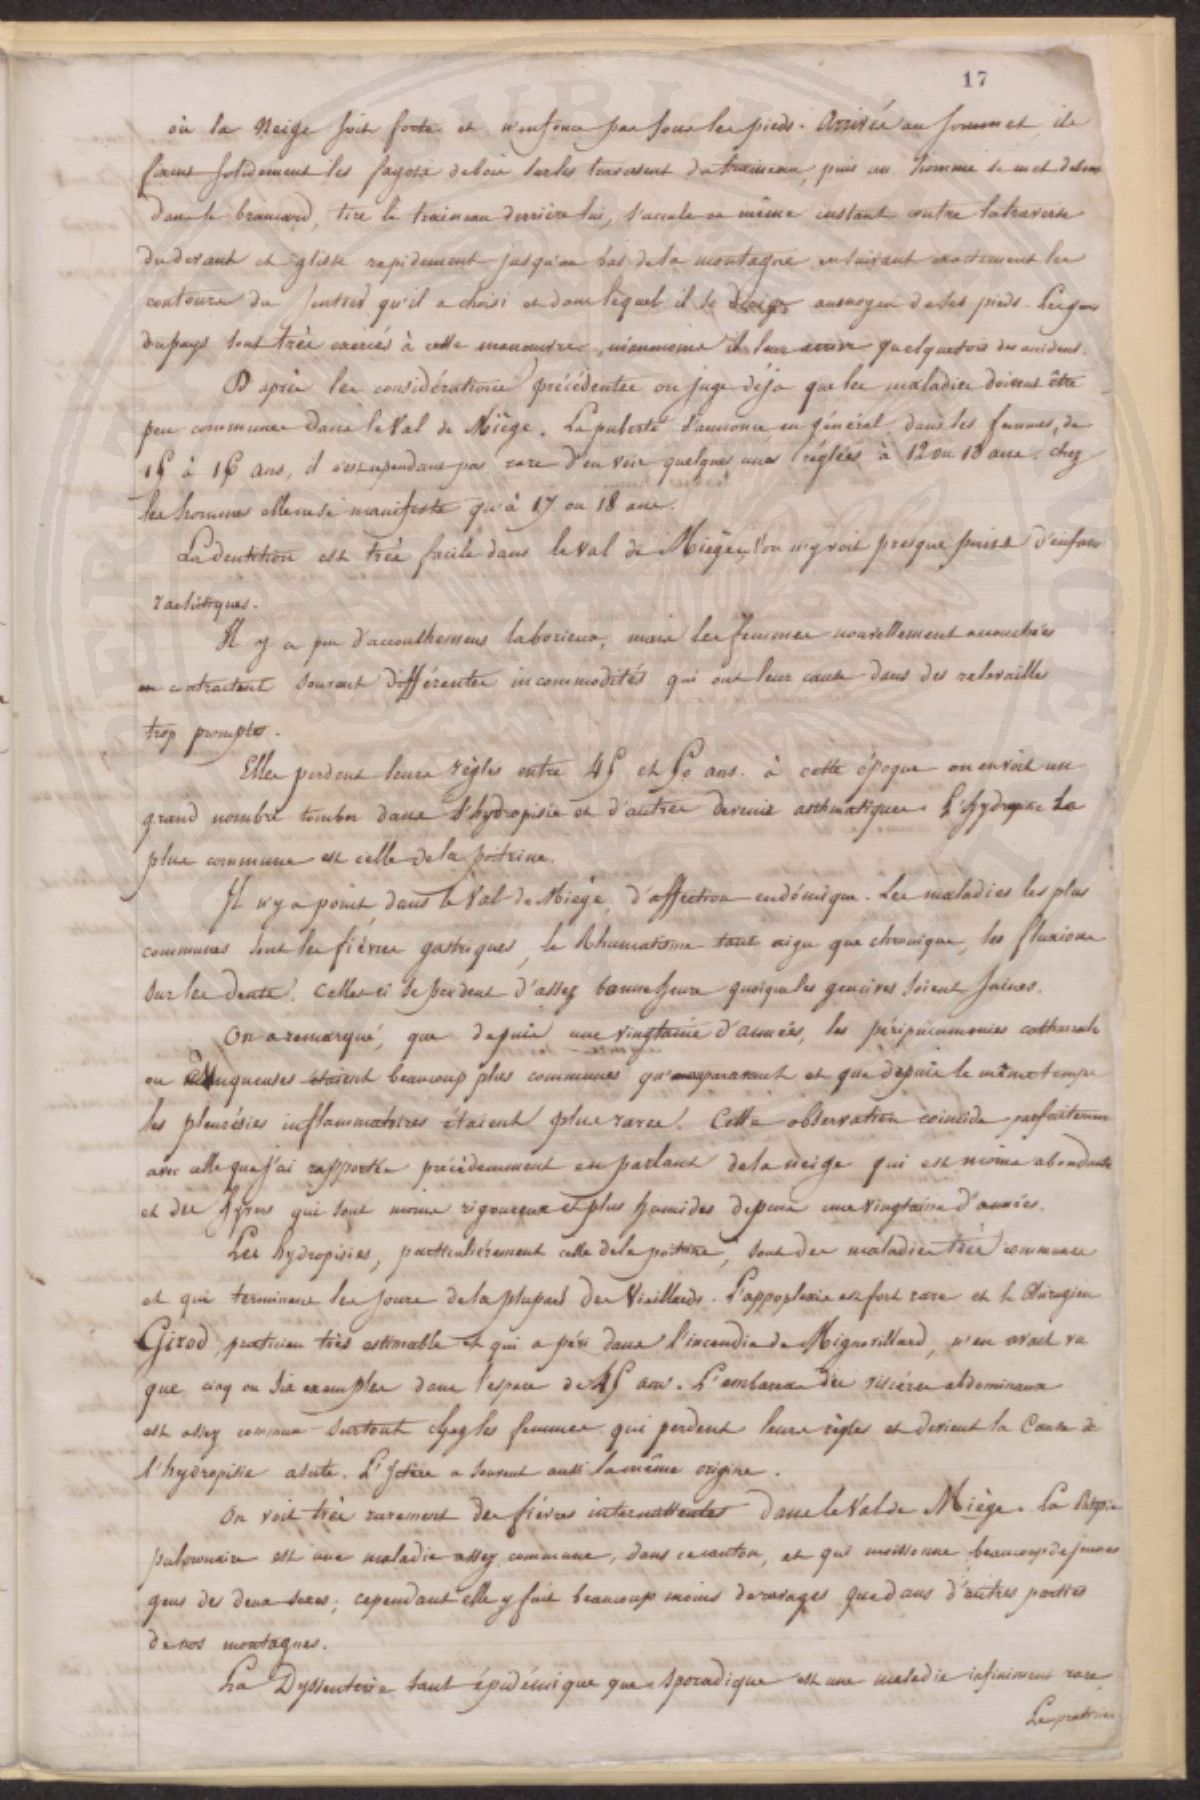 17
où la Neige soit forte et n'enfonce pas sous les pieds. Arrivés au sommet, ils
fixent solidement les fagots de bois sur les traversent du traineau, puis un homme se met debout
dans le brancard, tire le traineau derrière lui, s'accule au même instant contre la traverse
du devant et glisse rapidement jusqu'au bas de la montagne en suivant exactement les
contours du sentier qu'il a choisi et dans lequel il se dirige au moyen de ses pieds. Les gens
du pays sont très exercés à cette manœuvre, néanmoins il leur arrive quelquefois des accidens.
D'après les considérations précédentes on juge déjà que les maladies doivent être
peu communes dans le Val de Miège. La puberté s'annonce en général, dans les femmes, de
15 à 16 ans, il n'est cependant pas rare d'en voir quelques unes réglées à 12 ou 13 ans. chez
les hommes elle ne se manifeste qu'à 17 ou 18 ans.
La dentition est très facile dans le val de Miège, l'on n'y voit presque point d'enfans
rachitiques.
Il y a peu d'accouchemens laborieux, mais les femmes nouvellement accouchées
en contractent souvent différentes incommodités qui ont leur cause dans des relevailles
trop promptes.
Elles perdent leurs règles entre 45 et 50 ans. à cette époque on en voit un
grand nombre tomber dans l'hydropisie et d'autres devenir asthmatiques. L'hydropisie la
plus commune est celle de la poitrine.
Il n'y a point, dans le Val de Miège, d'affection endémique. Les maladies les plus
communes sont les fièvres gastriques, le Rhumatisme tant aigu que chronique, les fluxions
sur les dents. Celles-ci se perdent d'assez bonne heure quoique les gencives soient saines.
On a remarqué, que depuis une vingtaine d'années, les péripneumonies catharrales
ou muqueuses étaient beaucoup plus communes qu'auparavant et que depuis le même temps
les pleurésies inflammatoires étaient plus rares. Cette observation coincide parfaitement
avec celle que j'ai rapportée précédemment en parlant de la neige qui est moins abondante
et des hyvers qui sont moins rigoureux et plus humides depuis une vingtaine d'années.
Les hydropisies, particulièrement celle de la poitrine, sont des maladies très communes
et qui terminent les jours de la plupart des Vieillards. L'appoplexie est fort rare et le Chirurgien
Girod, praticien très estimable et qui a péri dans l'incendie de Mignovillard, n'en avait vu
que cinq ou six exemples dans l'espace de 45 ans. L'embarras des viscères abdominaux
est assez commun surtout chez les femmes qui perdent leurs règles et devient la Cause de
l'hydropisie ascite. L'Ictère a souvent aussi la même origine.
On voit très rarement des fièvres intermittentes dans le Val de Miège. La Phtysie
pulmonaire est une maladie assez commune, dans ce canton, et qui moissonne beaucoup de jeunes
gens des deux sexes; cependant elle y fait beaucoup moins de ravages que dans d'autres parties
de nos montagnes.
La Dyssenterie tant épidémique que sporadique est une maladie infiniment rare.
Le praticien